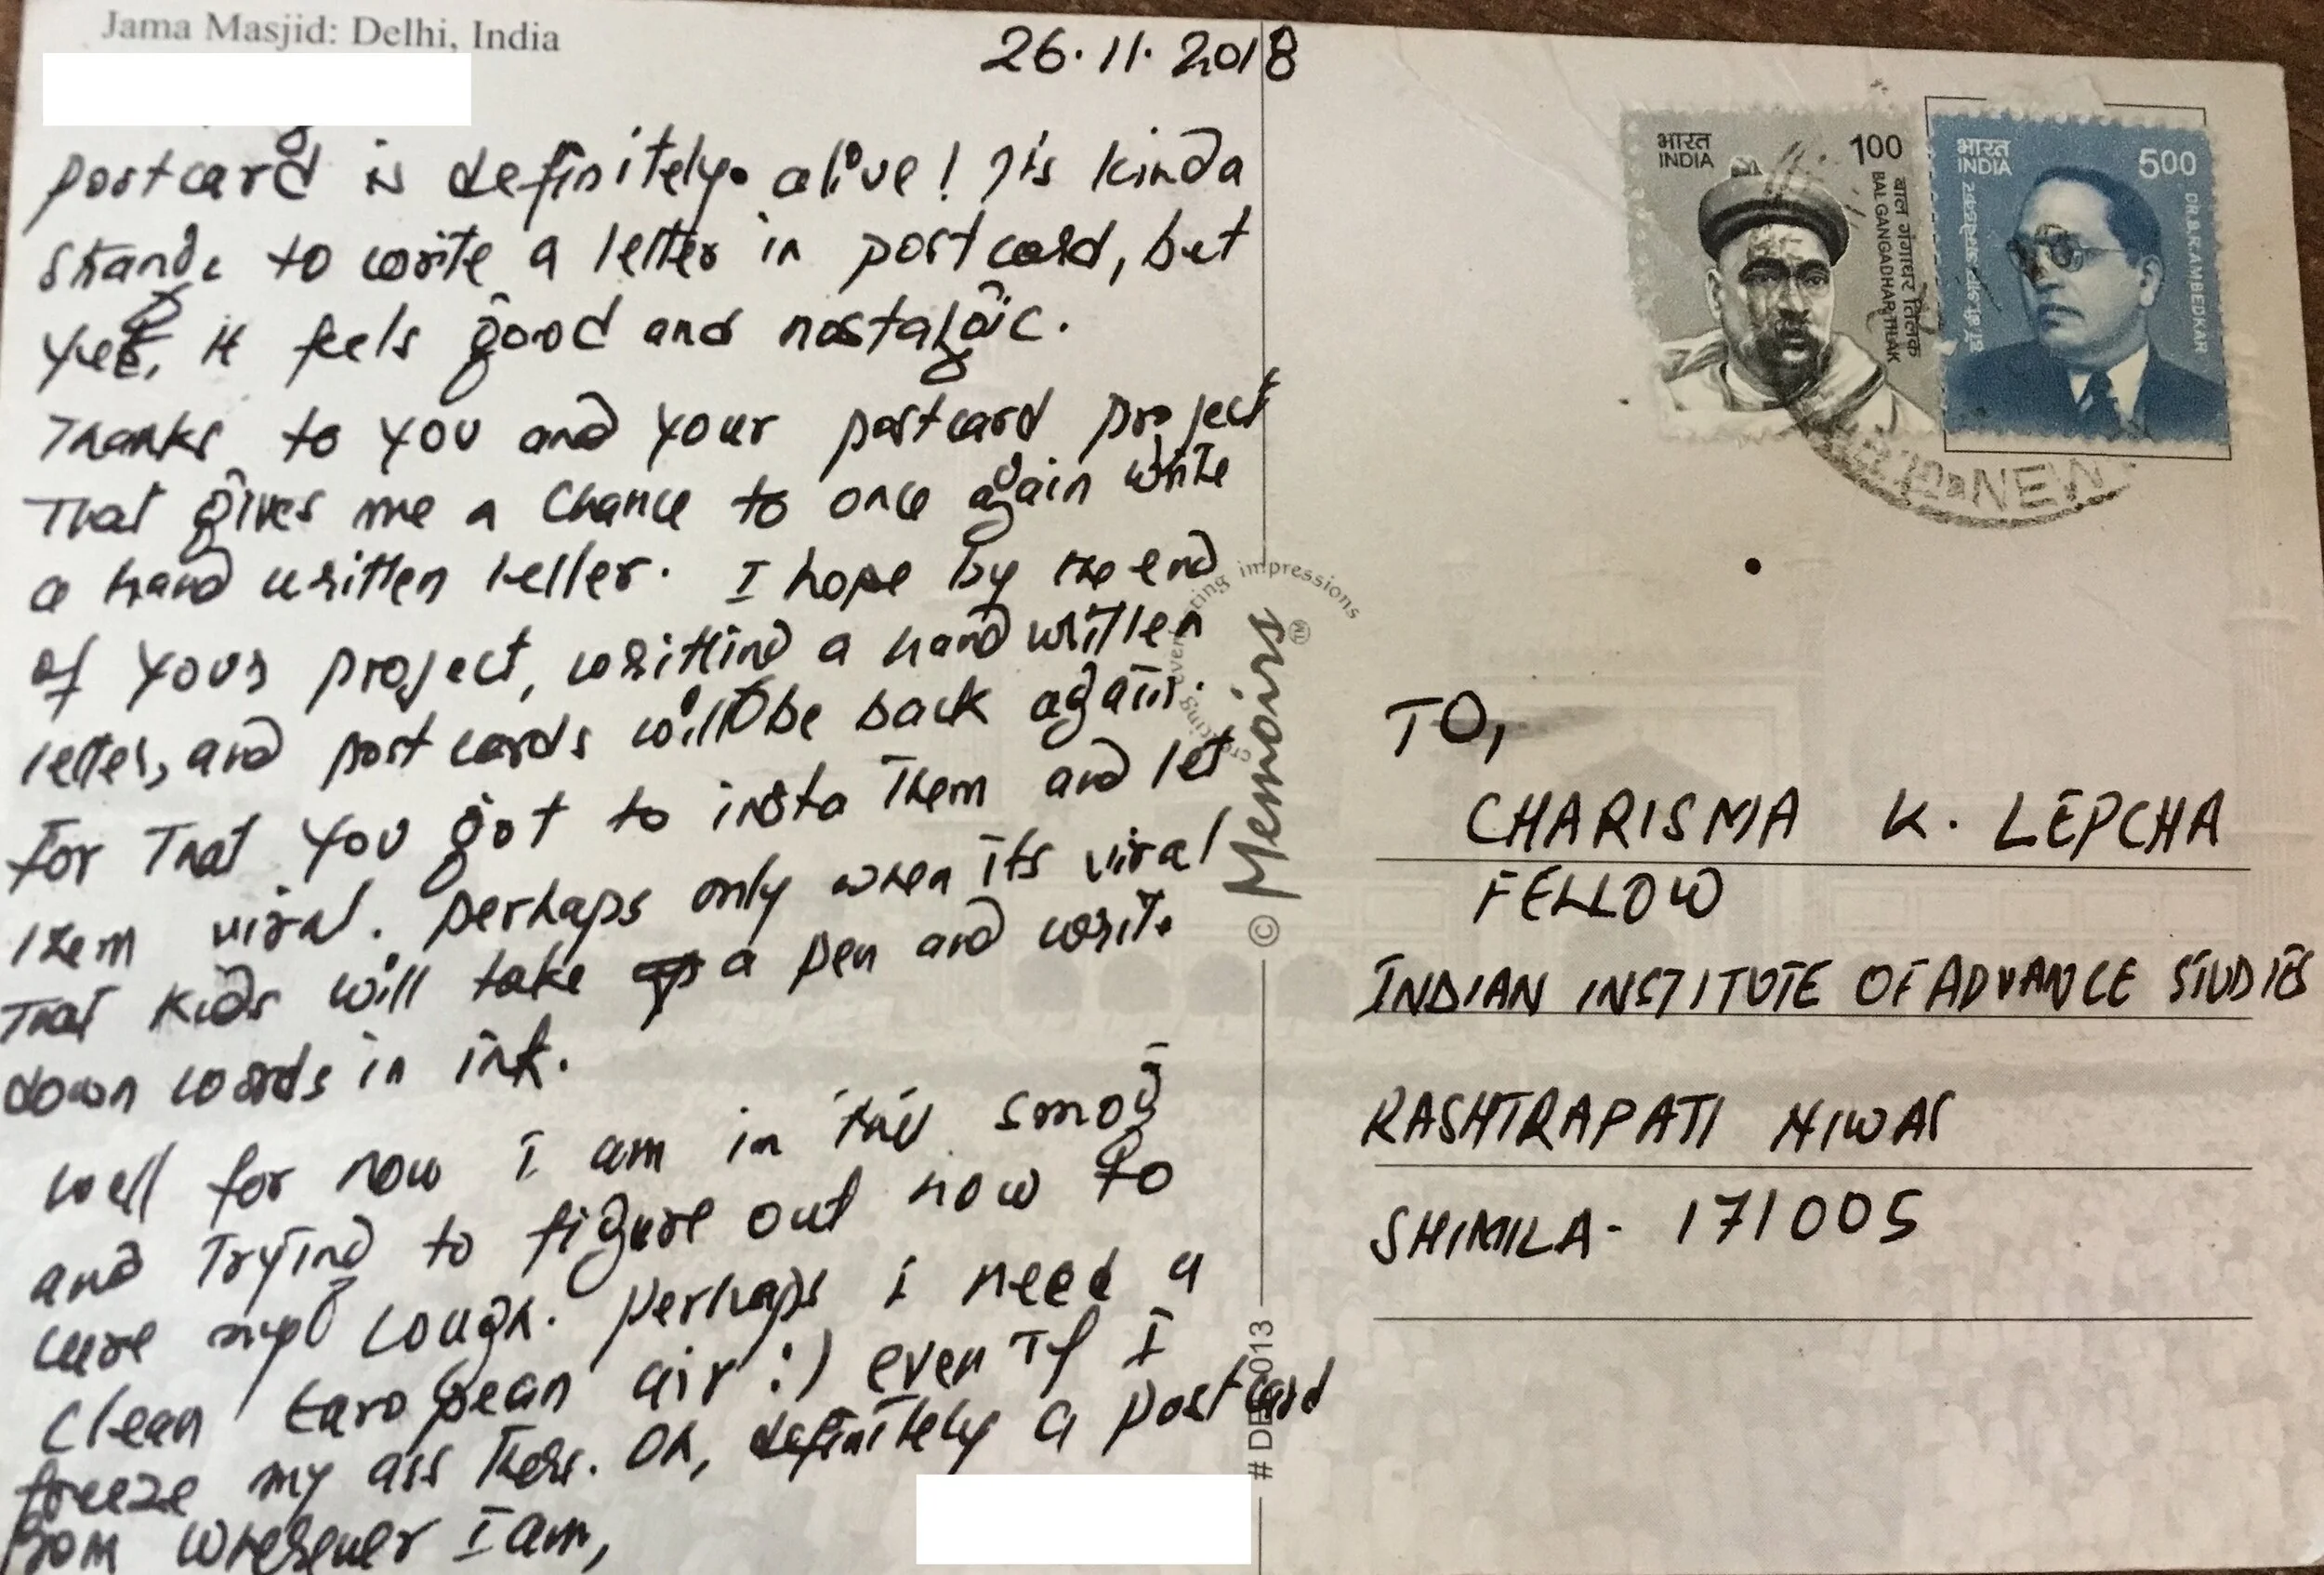 Jama Masjid: Delhi, India
26.11.2018
postcard is definitely alive! It's kinda
strand to write a letter in post card, but
yet, it feels good and nostalgic.
Thanks to you and your postcard project
That gives me a chance to once again write
a hand written letter. I hope by the end
of your project, writting a hand written
letter, and post cards will be back again.
For That you got to insta Them and let
them viral. perhaps only when its viral
That kids will take a pen and write
down words in ink.
well for now I am in the smog
and Trying to figure out how to
cure my cough. perhaps i need a
clean European air :) even If I
freeze my ass there. Oh, definitely a postcard
from wherever I am,
creating everlasting impressions
© Memoirs TM
# DE 013
भारत
INDIA
100
बाल गंगाधर तिलक
BAL GANGADHAR TILAK
भारत
INDIA
500
डॉ. बी. आर. अम्बेडकर
DR. B.R. AMBEDKAR
NEW
TO,
CHARISMA K. LEPCHA
FELLOW
INDIAN INSTITUTE OF ADVANCE STUDIES
RASHTRAPATI NIWAS
SHIMLA - 171005